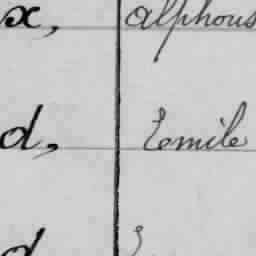 x, alphons
d, Emile
d